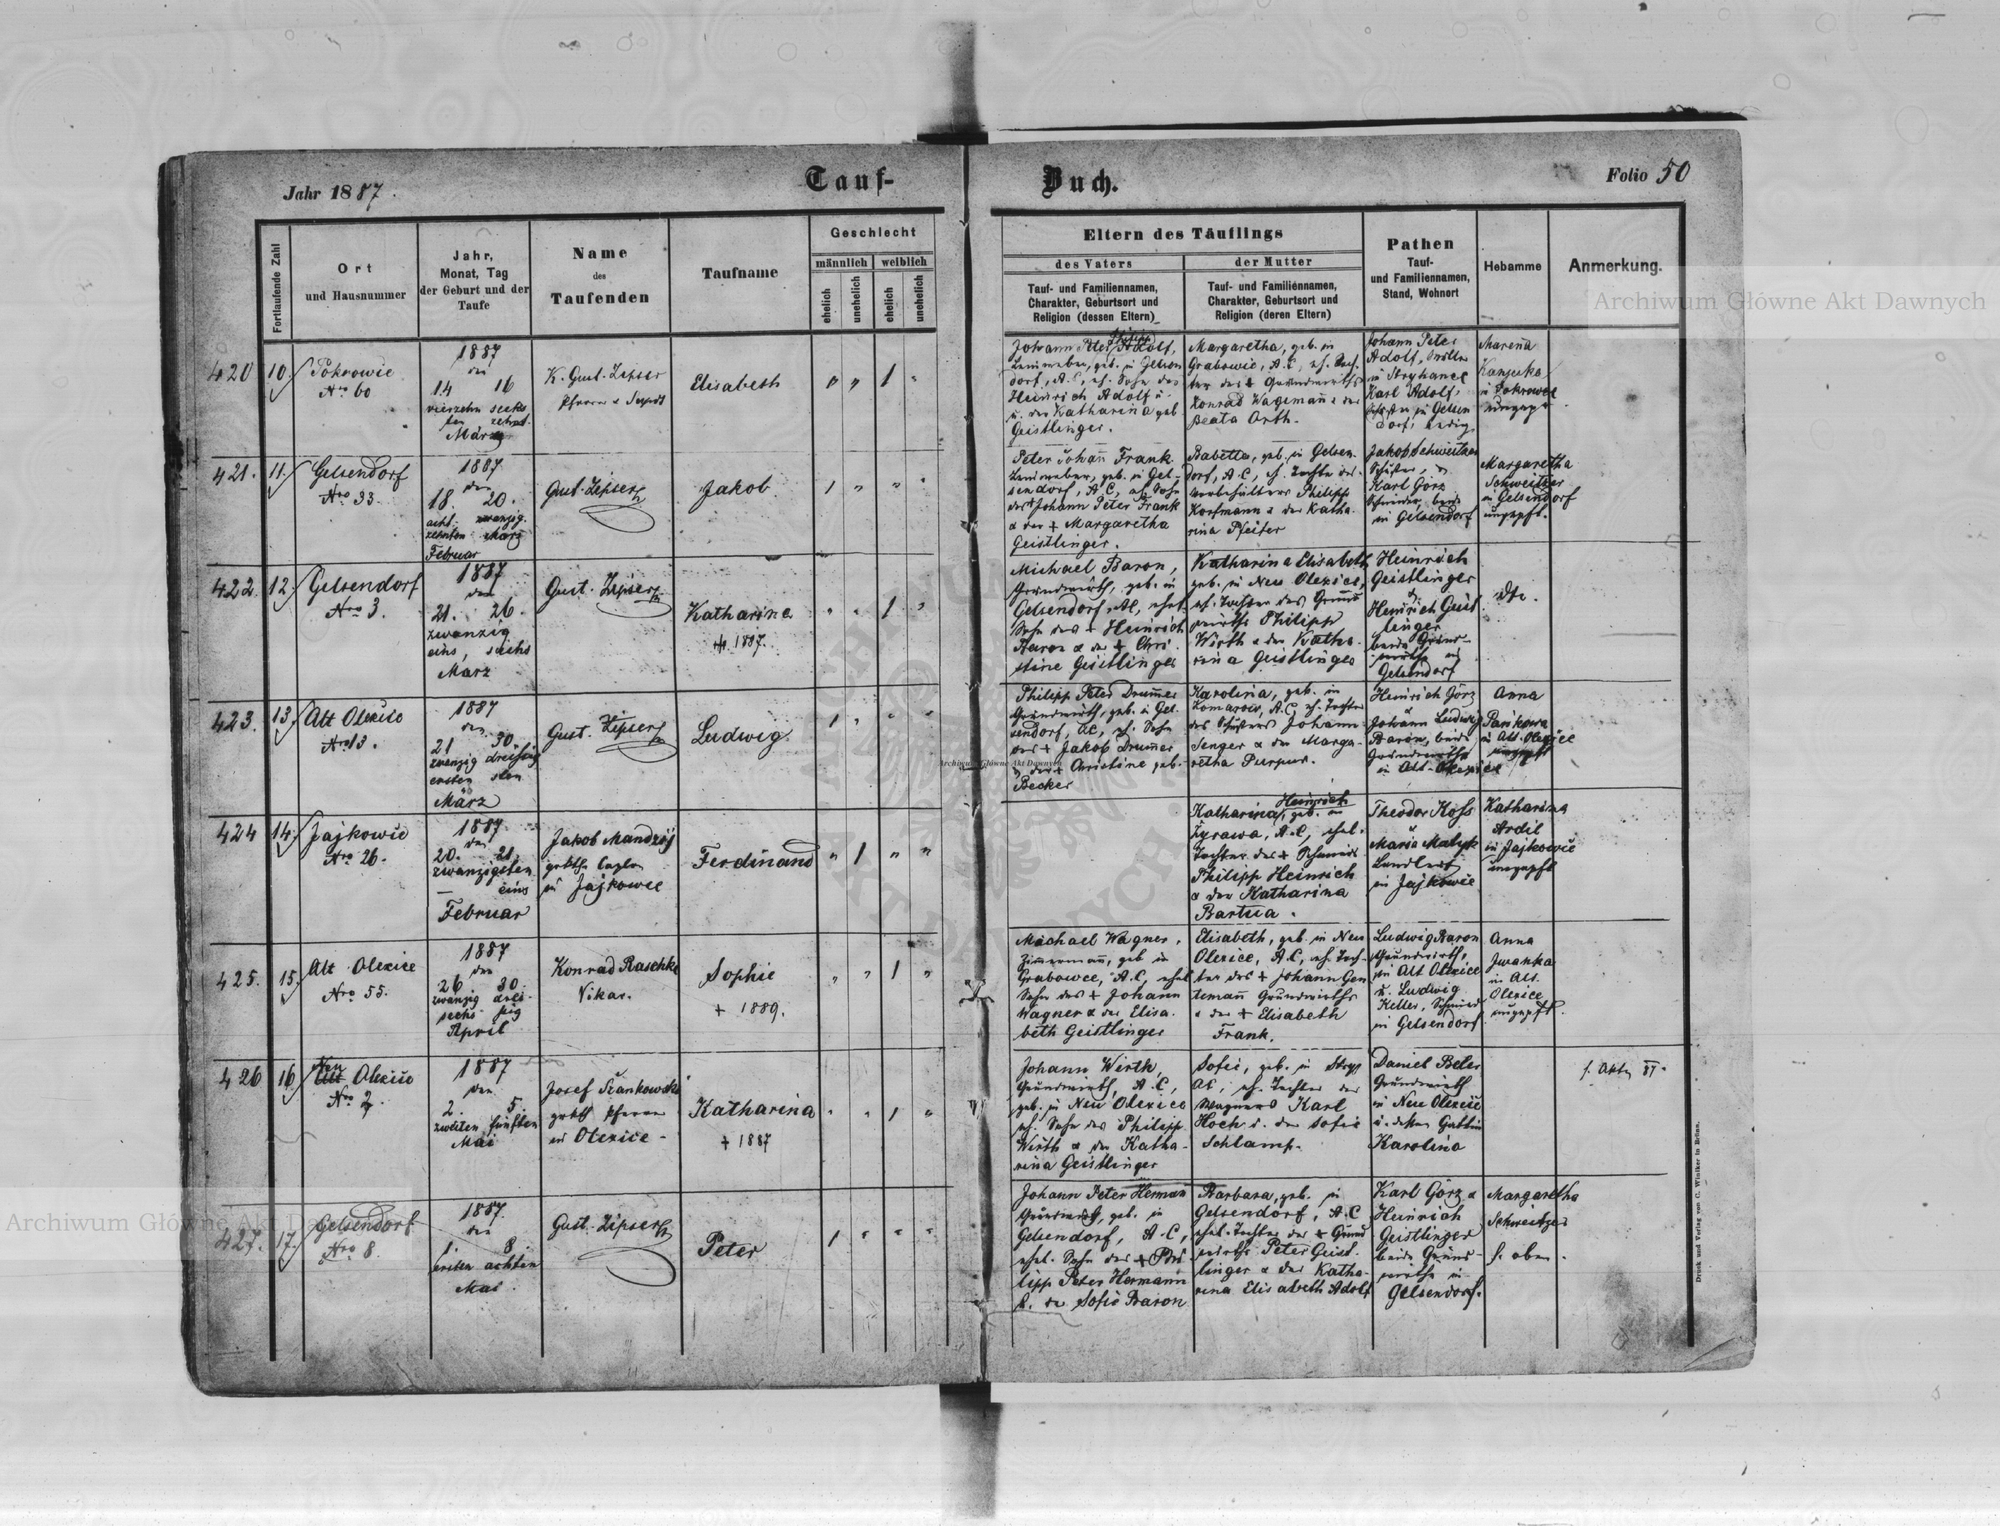 Jahr 1887.
Tauf-
Buch.
Folio 50
Fortlaufende Zahl
Ort
und Hausnummer
Jahr,
Monat, Tag
der Geburt und der
Taufe
Name
des
Taufenden
Taufname
Geschlecht
männlich
weiblich
ehelich
unehelich
ehelich
unehelich
Eltern des Täuflings
des Vaters
Tauf- und Familiennamen,
Charakter, Geburtsort und
Religion (dessen Eltern)
der Mutter
Tauf- und Familiennamen,
Charakter, Geburtsort und
Religion (deren Eltern)
Pathen
Tauf-
und Familiennamen,
Stand, Wohnort
Hebamme
Anmerkung.
420
10.
Pokrowic
Nro 60
1887
den
14 16
vierzehn sechs
ten zehnt.
März
K. Gust. Zipser
Pfarrer
Elisabeth
Johann Peter Adolf,
Leinweber, geb. in Gelsen
dorf, A.C., eh. Sohn des
Heinrich Adolf u.
u. der Katharina geb
Geistlinger.
Margaretha, geb. in
Grabowic, A.C., eh. Toch-
ter des + Grundwirths
Konrad Wagemann u der
Beata Orth.
Johann Peter
Adolf,
in Stryhance
Karl Adolf,
in Gelsen
dorf, ledig
Marena
in Pokrowce
ungepr.
421.
11.
Gelsendorf
Nro 33.
1887
den
18. 20.
acht. zwanzig.
zehnten März
Februar
Gust. Zipser
Jakob
Peter Johann Frank
Leinweber, geb. in Gel-
sendorf, A.C., eh. Sohn
des Johann Peter Frank
& der + Margaretha
Geistlinger.
Babette, geb. in Gelsen-
dorf, A.C., eh. Tochter des
Philipp
Korfmann & der Katha-
rina Pfeifer
Jakob Schweitzer
&
Karl Görz
beide
in Gelsendorf
Margaretha
Schweitzer
in Gelsendorf
ungepft.
422
12.
Gelsendorf
Nro 3.
1887
den
21. 26.
zwanzig
eins, sechs
März
Gust. Zipser
Katharina
+ 1887.
Michael Baron,
Grundwirth, geb. in
Gelsendorf, AC, ehel.
Sohn des + Heinrich
Baron & der + Chri-
stine Geistlinger
Katharina Elisabeth
geb. in Neu Olexice,
eh. Tochter des Grund
wirths Philipp
Wirth & der Katha-
rina Geistlinger
Heinrich
Geistlinger
&
Heinrich Geist
linger
beide Grund-
wirthe in
Gelsendorf
dto.
423.
13.
Alt Olexice
Nro 13.
1887
den
21 30
zwanzig dreißig
ersten sten
März
Gust. Zipser
Ludwig
Philipp Peter Drummer
Grundwirth, geb. in Gel.
sendorf, AC, eh. Sohn
des + Jakob Drummer
u der + Christine geb.
Becker
Karolina, geb. in
Komarow, A.C., eh. Tochter
des Johann
Senger & der Marga-
retha Purpur.
Heinrich Görz
&
Johann Ludwig
Baron, beide
Grundwirthe
in Alt-Olexice
Anna
in Alt. Olexice
ungepft
424
14.
Jajkowic
Nro 26.
1887.
den
20. 21.
zwanzigsten
eins
Februar
Jakob Mandzij
in Jajkowce
Ferdinand
Katharina Heinrich, geb. in
Żyrawa, A.C., ehel.
Tochter des + Schmieds
Philipp Heinrich
& der Katharina
Bartua.
Theodor Koss
&
Maria Matyk
Landleut
in Jajkowie
Katharina
Ardil
in Jajkowie
ungepft
425.
15.
Alt Olexice
Nro 55.
1887
den
26 30.
zwanzig drei-
sechs ßig
April
Konrad Raschke
Vikar.
Sophie
+ 1889.
Michael Wagner,
Zimmermann, geb in
Grabowce, A.C., ehel
Sohn des + Johann
Wagner & der Elisa.
beth Geistlinger
Elisabeth, geb. in Neu
Olexice, A.C., eh. Toch-
ter des + Johann Gen
temann Grundwirths
& der + Elisabeth
Frank.
Ludwig Baron
Grundwirth,
in Alt Olexice
u. Ludwig
Keller, Schmied
in Gelsendorf
Anna
Iwanka
in Alt.
Olexice
ungepft.
426
16
Neu Olexice
Nro 2.
1887
den
2. 5.
zweiten fünften
Mai
Josef
Pfarrer
in Olexice-
Katharina
+ 1887
Johann Wirth,
Grundwirth, A.C.,
geb. in Neu Olexice
eh. Sohn des Philipp
Wirth & der Katha-
rina Geistlinger
Sofie, geb. in Stryj
AC, eh. Tochter des
Wagners Karl
Hoch u. der Sofie
Schlamp.
Daniel Beler
Grundwirth
in Neu Olexice
u. dessen Gattin
Karolina
f. Akten VI.
427.
17.
Gelsendorf
Nro 8.
1887.
den
1. 8.
ersten achten
Mai
Gust. Zipser
Peter
Johann Peter Herman
Grundwirth, geb. in
Gelsendorf, A.C.,
ehel. Sohn des + Phi-
lipp Peter Hermann
& der Sofie Baron
Barbara, geb. in
Gelsendorf, A.C
ehel. Tochter des + Grund
wirths Peter Geist.
linger & der Katha-
rina Elisabeth Adolf
Karl Görz &
Heinrich
Geistlinger
beide Grund-
wirthe in
Gelsendorf.
Margaretha
Schweitzer
s. oben.
Druck und Verlag von C. Winiker in Brünn.
Archiwum Główne Akt Dawnych
Archiwum Główne Akt Dawnych
Archiwum Główne Akt Dawnych